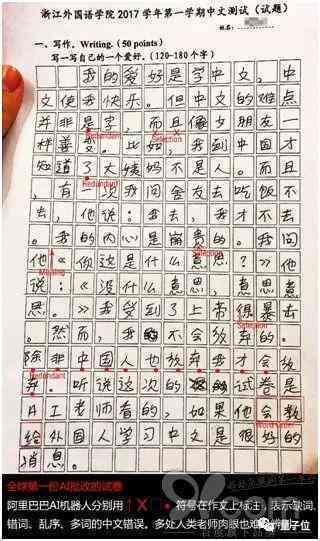 浙江外国语学院 2017 学年第一学期中文测试（试题）
一、写作。Writing.（50 points）
写一写自己的一个爱好。（120-180 个字）
我的爱好是学中文，中
文使我快乐。但中文的难点
并非是字，而且像女朋友一
Redundant
样善变。比如，我到中国才
知道了大姨妈不是人。而且
Redundant
，有一次我问舍友去吃饭不
去，他说：我去，我才不去
。我的内心是崩贵的。我问
Selection
他《你这是什么意思？》他
Missing
说：《没什么意思，意思意
思。》我受到了上帝很暴击
Selection
。然而，我不会放弃的。
除非中国人也放弃我才会放
Redundant
弃。听说这次的试卷是
AI老师看的，如果他会教
给外国人学习中文是很好的
消息。
全球第一份AI批改的试卷
阿里巴巴AI机器人分别用↑X□●符号在作文上标注，表示缺词、
错词、乱序、多词的中文错误。多处人类老师肉眼也难分辨
量子位